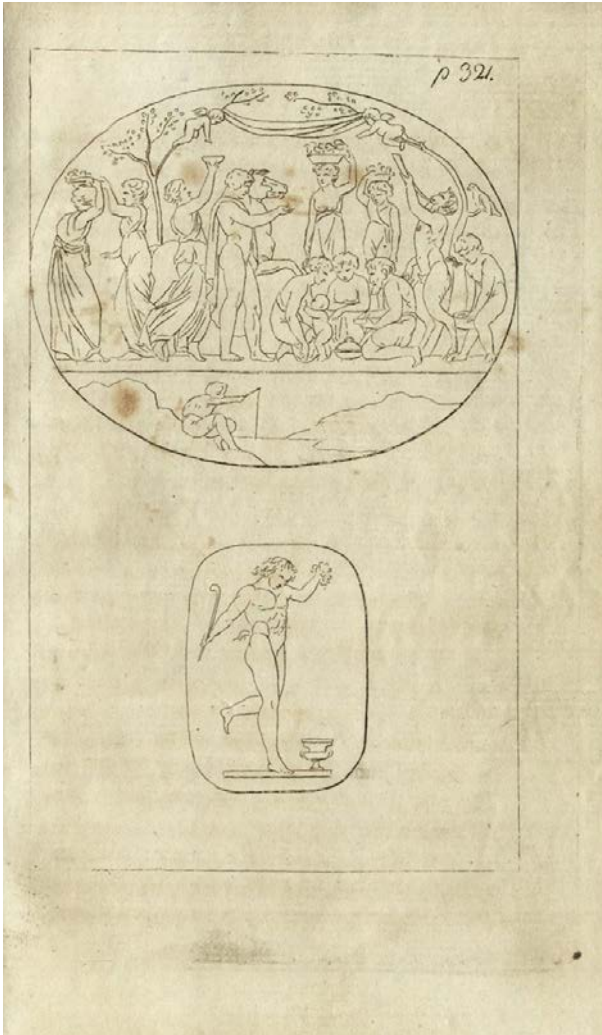 p 321.